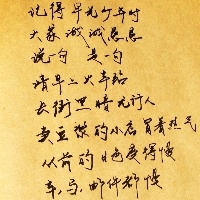 记得早先少年时
大家诚诚恳恳
说一句 是一句
清早上火车站
长街黑暗无行人
卖豆浆的小店冒着热气
从前的日色变得慢
车,马,邮件都慢